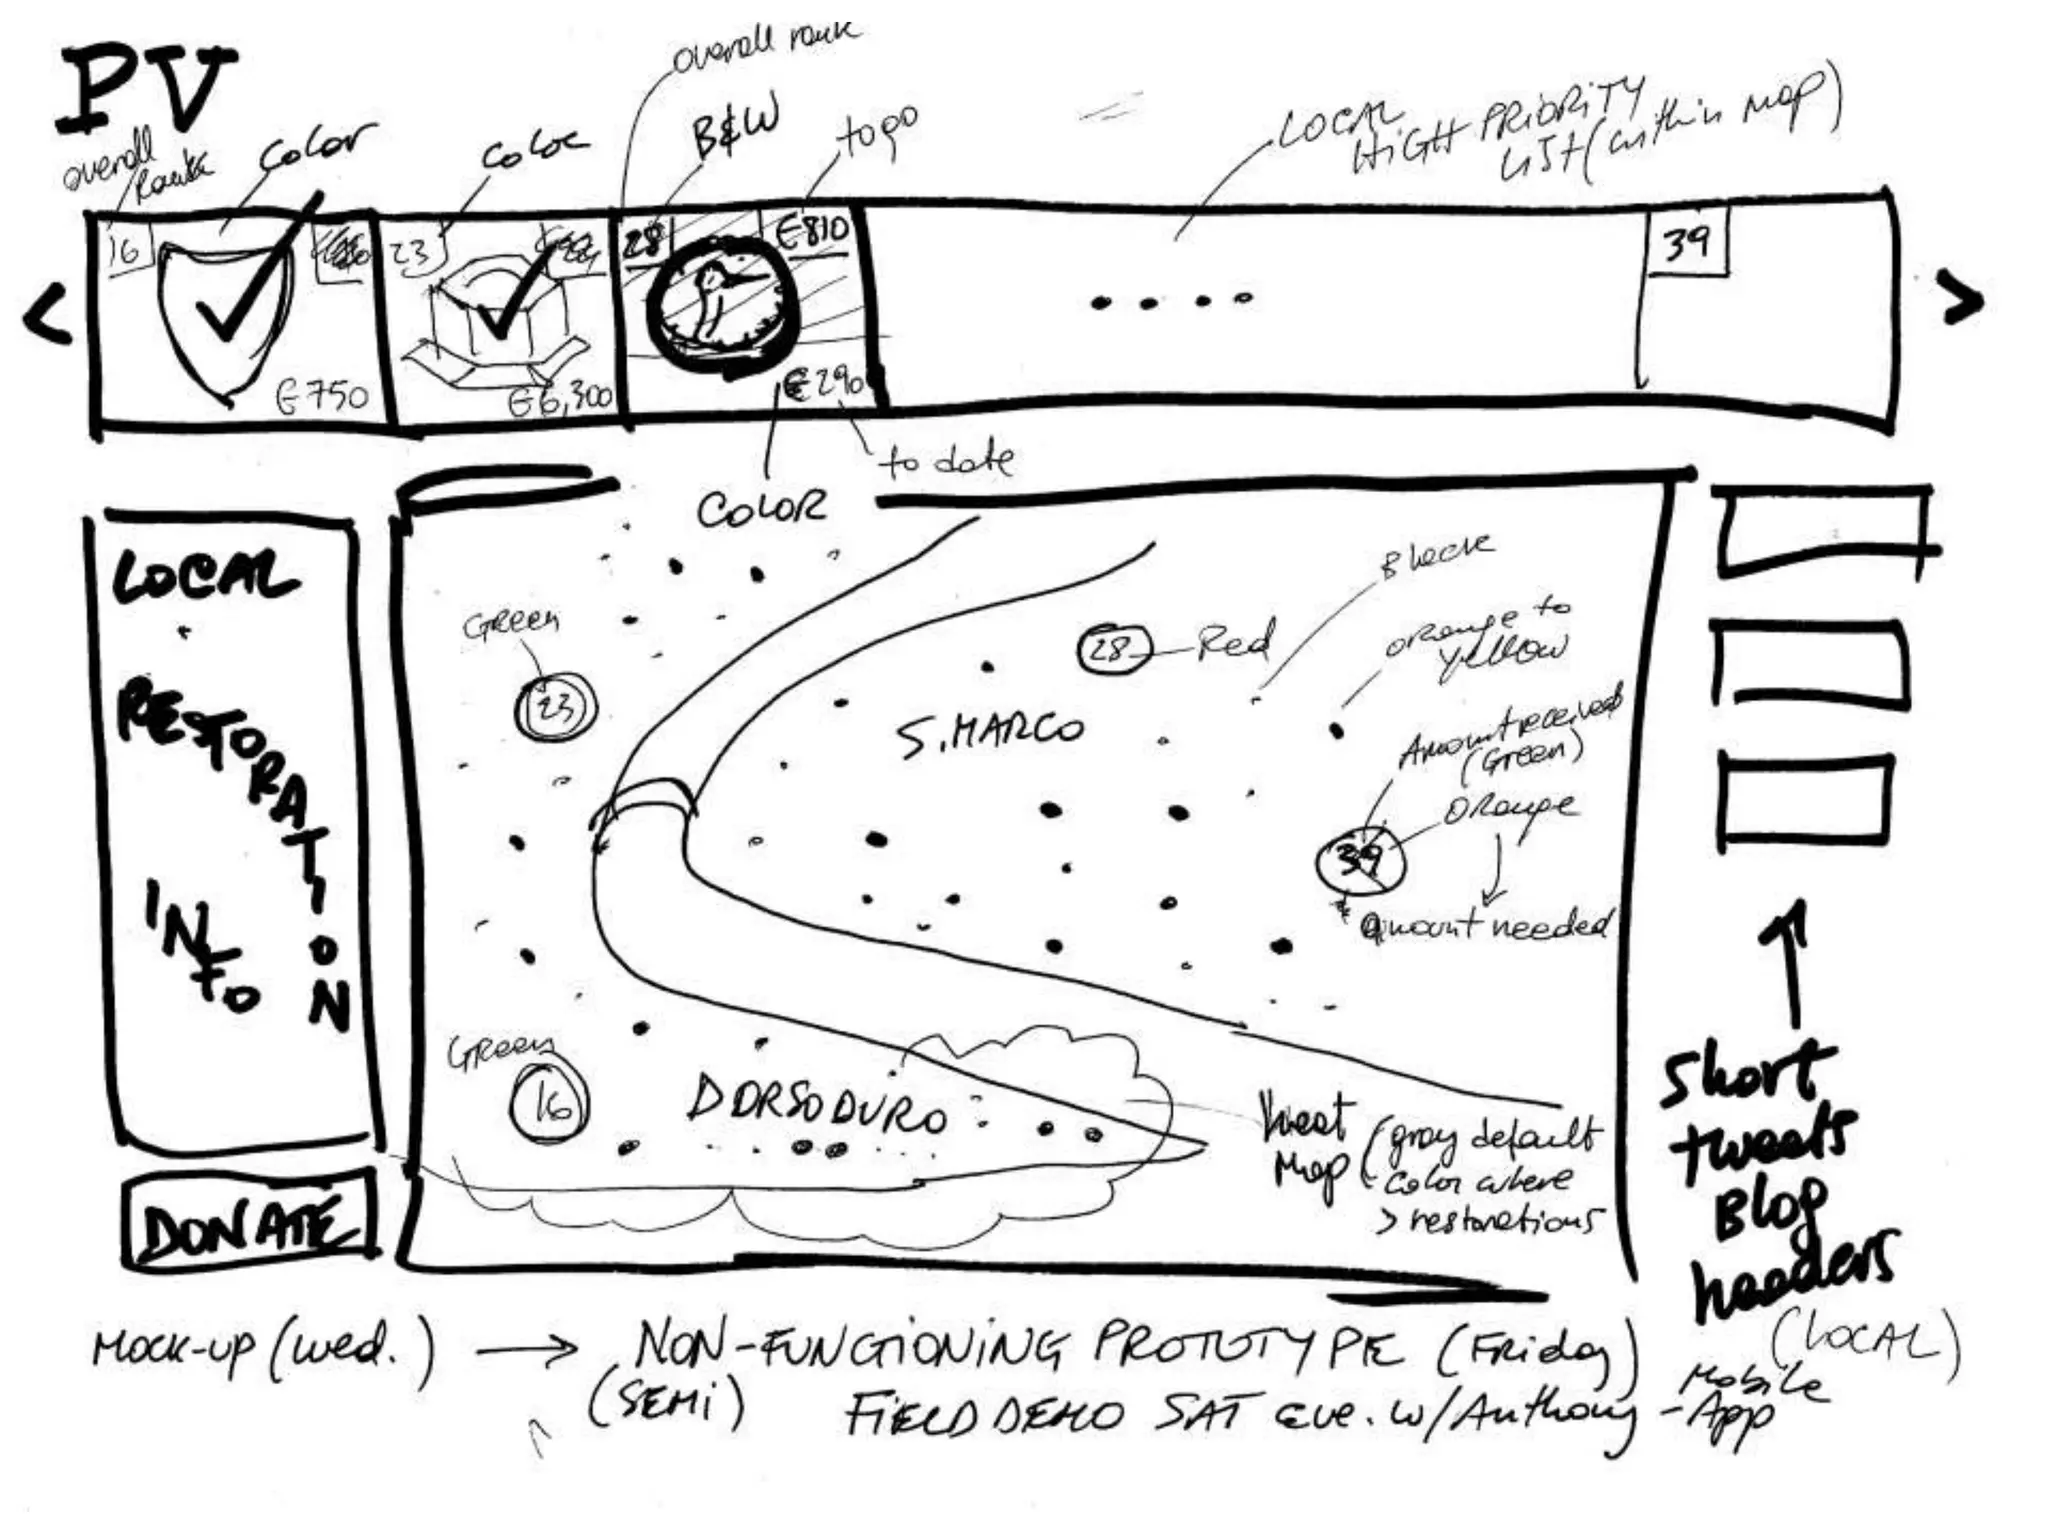 PV
overall rank
overall
rank
color
color
B&W
to go
LOCAL
HIGH PRIORITY
LIST (within map)
16
23
28
€810
39
€750
€6,300
€290
to date
COLOR
<
>
LOCAL
RESTORATION
INFO
DONATE
Green
23
28
Red
Black
orange to
yellow
S. MARCO
Amount received
(Green)
orange
39
amount needed
Green
16
DORSODURO
Heat
Map
(gray default
color where
> restorations
short
tweets
BLOg
headers
(LOCAL)
MOCK-UP (wed.) → NON-FUNCTIONING PROTOTYPE (FRiday)
(SEMi) FiELD DEMO SAT eve. w/Anthony - Mobile
App